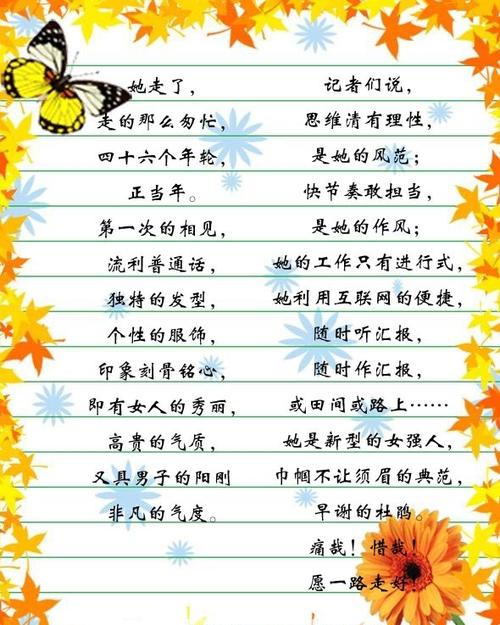 她走了，
走的那么匆忙，
四十六个年轮，
正当年。
第一次的相见，
流利普通话，
独特的发型，
个性的服饰，
印象刻骨铭心，
即有女人的秀丽，
高贵的气质，
又具男子的阳刚
非凡的气度。
记者们说，
思维清有理性，
是她的风范；
快节奏敢担当，
是她的作风；
她的工作只有进行式，
她利用互联网的便捷，
随时听汇报，
随时作汇报，
或田间或路上……
她是新型的女强人，
巾帼不让须眉的典范，
早谢的杜鹃。
痛哉！惜哉！
愿一路走好！